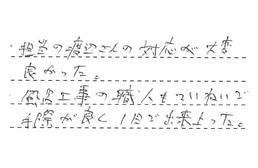 ・担当の渡辺さんの対応が大変
良かった。
・風呂工事の職人もていねいで
手際が良く1日で出来上った。